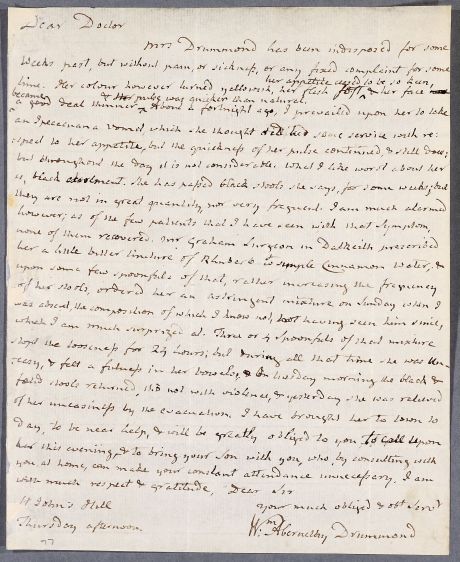 Dear Doctor
Mrs Drummond has been indisposed for some
weeks past, but without pain, or sickness, or any fixed complaint for some
her appetite ceased to be so keen,
time. Her colour however turned yellowish, her flesh soft, & her face
became & Her pulse was quicker than natural.
a good deal thinner. About a fortnight ago, I prevailed upon her to take
an Ipecacuana vomit, which she thought did her some service with re:
spect to her appetite, but the quickness of her pulse continued, & still does;
but throughout the day it is not considerable. What I like worst about her
is, black excrement. She has passed black stools she says, for some weeks; but
they are not in great quantity, nor very frequent. I am much alarmed
however; as of the few patients that I have seen with that Symptom,
none of them recovered. Mr Graham Surgeon in Dalkeith prescribed
her a little bitter tincture of Rhubarb in simple Cinnamon Water, &
upon some few spoonfuls of that, rather increasing the frequency
of her stools, ordered her an astringent mixture on Sunday when I
was absent, the composition of which I know not, not having seen him since,
which I am much surprized at. Three or 4 spoonfuls of that mixture
stopt the looseness for 24 hours; but during all that time she was un:
easy, & felt a fulness in her bowels, & on tuesday morning the black &
foetid stools returned, tho not with violence, & yesterday she was relieved
of her uneasiness by the evacuation. I have brought her to town to
day, to be near help, & will be greatly obliged to you to call upon
her this evening, & to bring your Son with you, who, by consulting with
you at home, can make your constant attendance unnecessary. I am
with much respect & gratitude, Dear Sir
your much obliged & obt. Servt
St John's Hill
Thursday afternoon.
Wm Abernethy Drummond
77